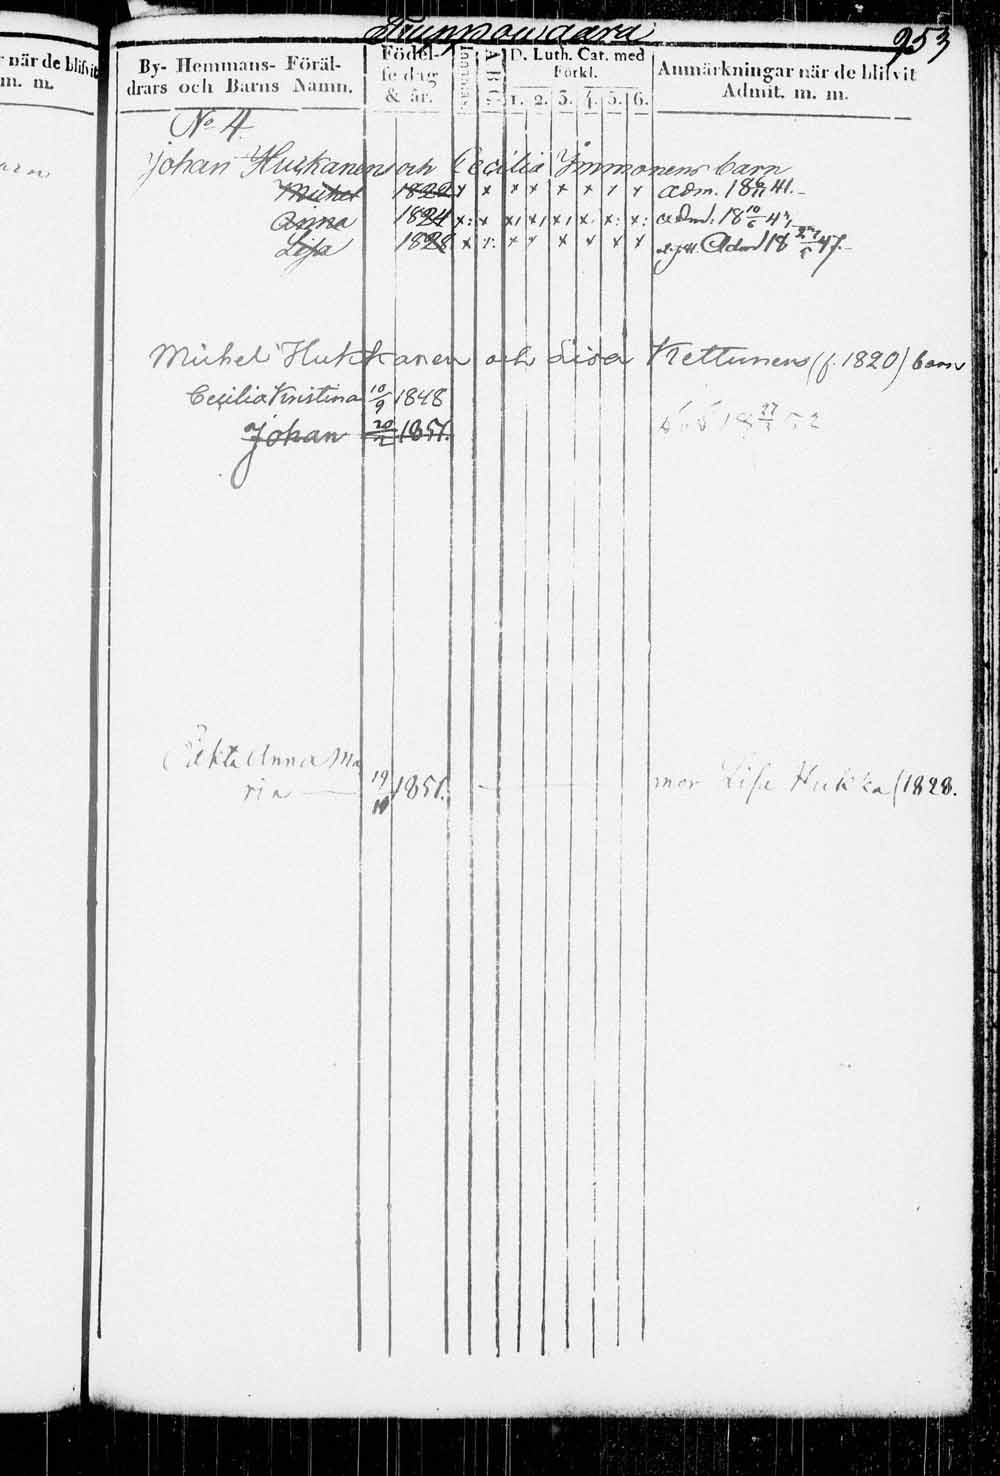 953
när de blifvit
m. m.
By- Hemmans- Föräl-
drars och Barns Namn.
Födel-
se dag
& år.
Innanläs.
A B C
D. Luth. Cat. med
Förkl.
1. 2. 3. 4. 5. 6.
Anmärkningar när de blifvit
Admit. m. m.
No 4.
Johan Hukkanens och Cecilia Immonens barn
Michel 1820 x x x x x x x x adm. 18 41.
Anna 1824 x x x x x x x x adm. 18 10/6 43
Lisa 1828 x x x x x x x Adm 18 47.
Michel Hukkanen och Lisa Kettunens (f. 1820) barn
Cecilia Kristina 10/9 1848
Johan 20/12 1851. 18 27/3 52
Oäkta Anna Ma
ria 19/10 1851. mor Lisa Hukka 1828.